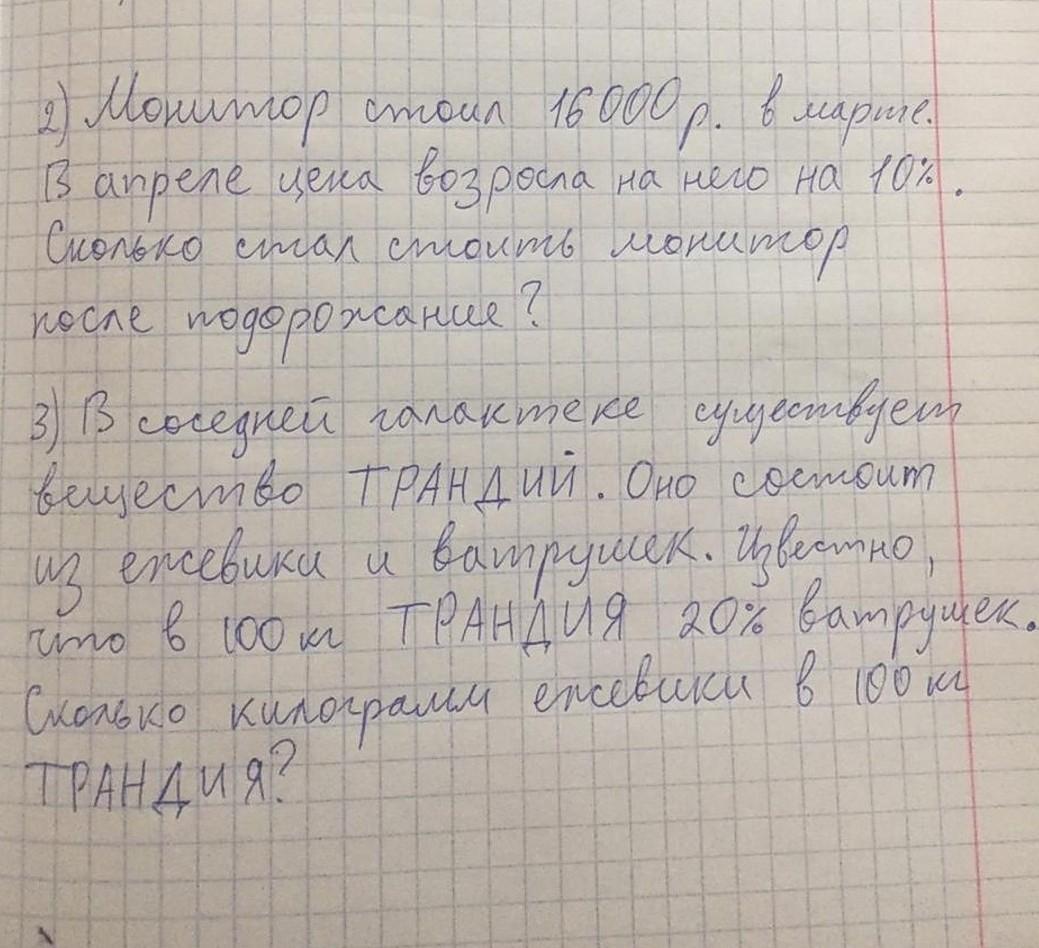 2) Монитор стоил 16000 р. в марте.
В апреле цена возросла на него на 10%.
Сколько стал стоить монитор
после подорожания?
3) В соседней галактеке существует
вещество ТРАНДИЙ. Оно состоит
из ежевики и ватрушек. Известно,
что в 100 кг ТРАНДИЯ 20% ватрушек.
Сколько килограмм ежевики в 100 кг
ТРАНДИЯ?